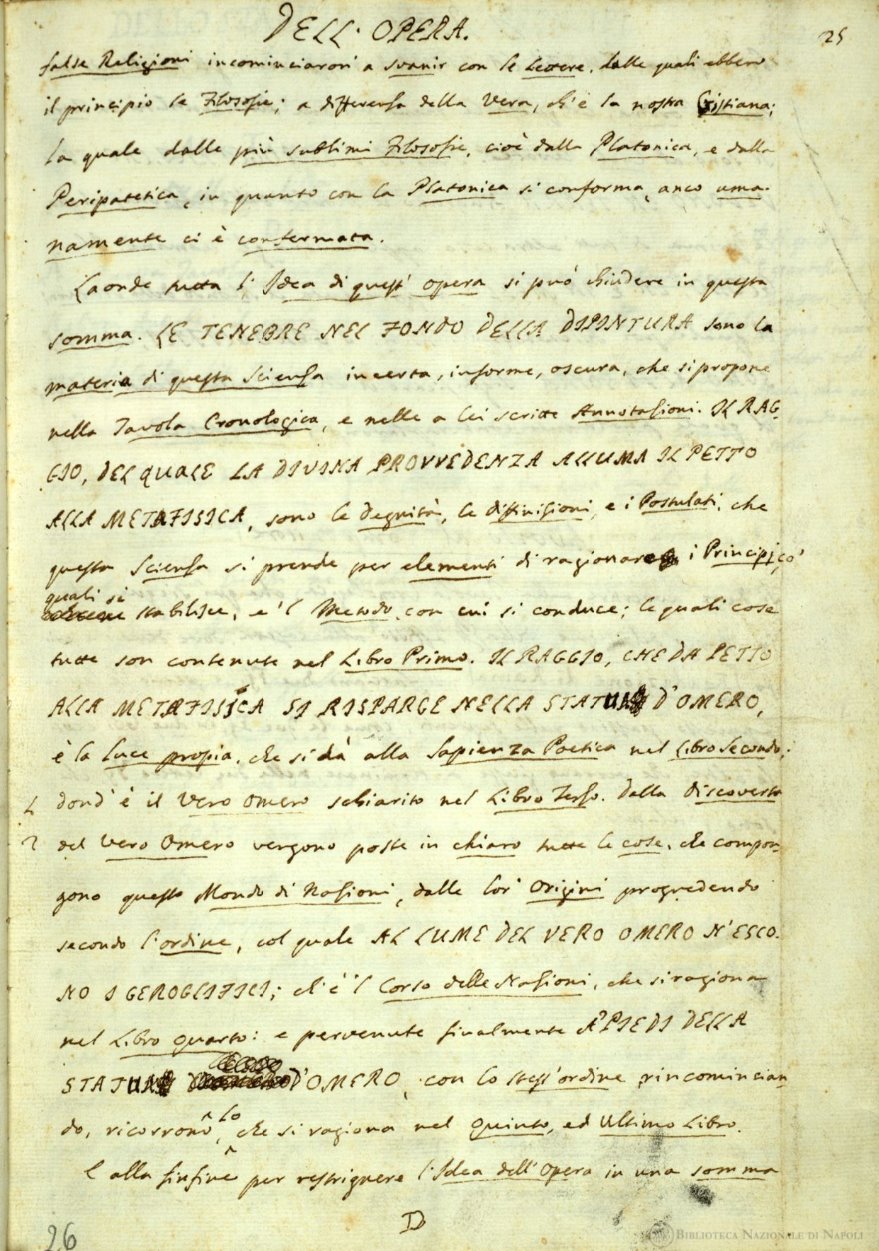 DELL' OPERA.
25
false Religioni incominciaron' a svanir con le Lettere, dalle quali ebbero
il principio le Filosofie; a differenza della Vera, ch'è la nostra Cristiana;
la quale dalle più sublimi Filosofie, cioè dalla Platonica, e dalla
Peripatetica, in quanto con la Platonica si conforma, anco uma-
namente ci è confermata.
Laonde tutta l' Idea di quest' opera si può chiudere in questa
somma. LE TENEBRE NEL FONDO DELLA DIPINTURA sono la
materia di questa Scienza incerta, informe, oscura, che si propone
nella Tavola Cronologica, e nelle a lei scritte Annotazioni. IL RAG-
GIO, DEL QUALE LA DIVINA PROVVEDENZA ALLUMA IL PETTO
ALLA METAFISICA, sono le Degnità, le diffinizioni, e i Postulati, che
questa Scienza si prende per elementi di ragionar i Principj, co'
quali si
stabilisce, e 'l Metodo, con cui si conduce; le quali cose
tutte son contenute nel Libro Primo. IL RAGGIO, CHE DA PETTO
ALLA METAFISICA SI RISPARGE NELLA STATUA D'OMERO,
è la Luce propia, che si dà alla Sapienza Poetica nel Libro Secondo;
dond' è il Vero Omero schiarito nel Libro Terzo. Dalla Discoverta
del Vero Omero vengono poste in chiaro tutte le cose, che compon-
gono questo Mondo di Nazioni, dalle lor' Origini progredendo
secondo l'ordine, col quale AL LUME DEL VERO OMERO N'ESCO-
NO I GEROGLIFICI; ch'è 'l Corso delle Nazioni, che si ragiona
nel Libro Quarto: e pervenute finalmente A' PIEDI DELLA
STATUA D'OMERO, con lo stess'ordine rincomincian-
lo
do, ricorrono, che si ragiona nel Quinto, ed Ultimo Libro.
E alla finfine per restrignere l'Idea dell' Opera in una somma
D
26
BIBLIOTECA NAZIONALE DI NAPOLI